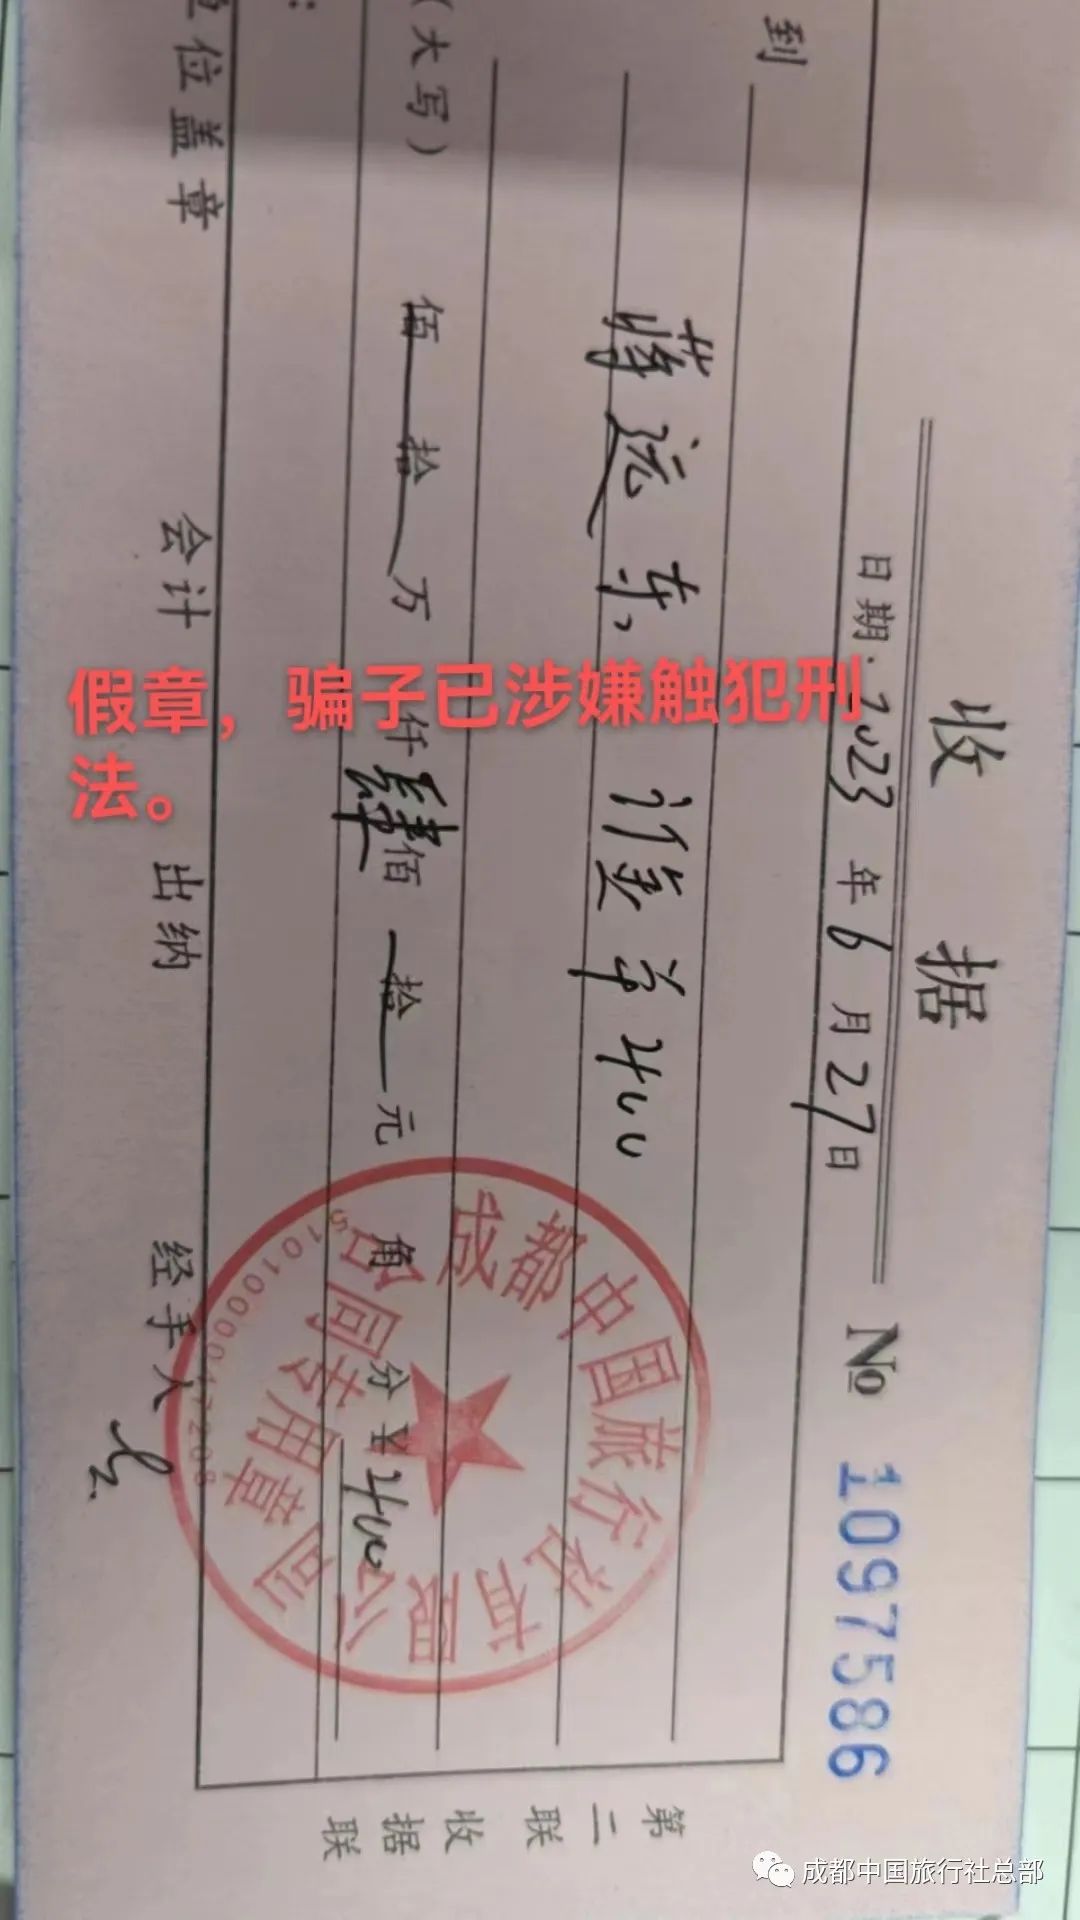 收 据
日期:2023年6月27日 № 1097586
到
蒋运东, 谨美华 400
(大写) 佰 拾 万 仟 肆 佰 拾 元 角 分 ¥ 400
位盖章 会计 出纳 经手人
成都中国旅行社有限公司
合同专用章
第二联 收据联
假章，骗子已涉嫌触犯刑
法。
成都中国旅行社总部